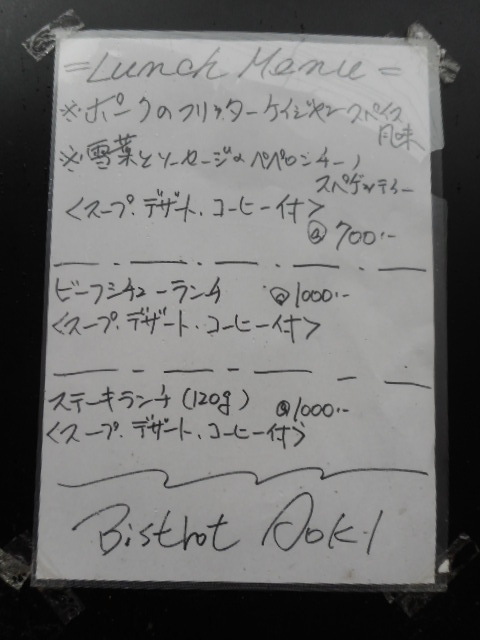 =Lunch Menu=
※ポークのフリッターケイジャンスパイス
風味
※雪菜とソーセージのペペロンチーノ
スパゲッティー
<スープ.デザート.コーヒー付>
@700.-
ビーフシチューランチ @1000.-
<スープ.デザート.コーヒー付>
ステーキランチ(120g) @1000.-
<スープ.デザート.コーヒー付>
Bistrot AOKI